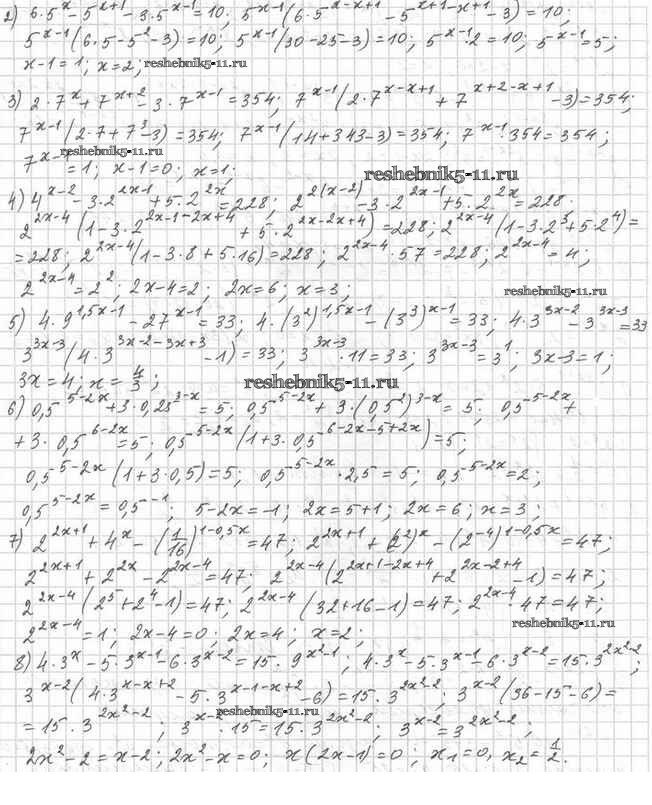 2) 6·5^x - 5^{x+1} - 3·5^{x-1} = 10; 5^{x-1}(6·5^{x-x+1} - 5^{x+1-x+1} - 3) = 10;
5^{x-1}(6·5 - 5^2 - 3) = 10; 5^{x-1}(30 - 25 - 3) = 10; 5^{x-1}·2 = 10; 5^{x-1} = 5;
x-1 = 1; x = 2; reshebnik5-11.ru
3) 2·7^x + 7^{x+2} - 3·7^{x-1} = 354; 7^{x-1}(2·7^{x-x+1} + 7^{x+2-x+1} - 3) = 354;
7^{x-1}(2·7 + 7^3 - 3) = 354; 7^{x-1}(14 + 343 - 3) = 354; 7^{x-1}·354 = 354;
reshebnik5-11.ru
7^{x-1} = 1; x-1 = 0; x = 1;
reshebnik5-11.ru
4) 4^{x-2} - 3·2^{2x-1} + 5·2^{2x} = 228; 2^{2(x-2)} - 3·2^{2x-1} + 5·2^{2x} = 228.
2^{2x-4}(1 - 3·2^{2x-1-2x+4} + 5·2^{2x-2x+4}) = 228; 2^{2x-4}(1 - 3·2^3 + 5·2^4) =
= 228; 2^{2x-4}(1 - 3·8 + 5·16) = 228; 2^{2x-4}·57 = 228; 2^{2x-4} = 4;
2^{2x-4} = 2^2; 2x-4 = 2; 2x = 6; x = 3; reshebnik5-11.ru
5) 4·9^{1,5x-1} - 27^{x-1} = 33; 4·(3^2)^{1,5x-1} - (3^3)^{x-1} = 33; 4·3^{3x-2} - 3^{3x-3} = 33
3^{3x-3}(4·3^{3x-2-3x+3} - 1) = 33; 3^{3x-3}·11 = 33; 3^{3x-3} = 3^1; 3x-3 = 1;
3x = 4; x = 4/3; reshebnik5-11.ru
6) 0,5^{5-2x} + 3·0,25^{3-x} = 5; 0,5^{5-2x} + 3·(0,5^2)^{3-x} = 5; 0,5^{5-2x} +
+ 3·0,5^{6-2x} = 5; 0,5^{5-2x}(1 + 3·0,5^{6-2x-5+2x}) = 5;
0,5^{5-2x}(1 + 3·0,5) = 5; 0,5^{5-2x}·2,5 = 5; 0,5^{5-2x} = 2;
0,5^{5-2x} = 0,5^{-1}; 5-2x = -1; 2x = 5+1; 2x = 6; x = 3;
7) 2^{2x+1} + 4^x - (1/16)^{1-0,5x} = 47; 2^{2x+1} + (2^2)^x - (2^{-4})^{1-0,5x} = 47;
2^{2x+1} + 2^{2x} - 2^{2x-4} = 47; 2^{2x-4}(2^{2x+1-2x+4} + 2^{2x-2+4} - 1) = 47;
2^{2x-4}(2^5 + 2^4 - 1) = 47; 2^{2x-4}(32 + 16 - 1) = 47; 2^{2x-4}·47 = 47;
2^{2x-4} = 1; 2x-4 = 0; 2x = 4; x = 2; reshebnik5-11.ru
8) 4·3^x - 5·3^{x-1} - 6·3^{x-2} = 15·9^{x^2-1}; 4·3^x - 5·3^{x-1} - 6·3^{x-2} = 15·3^{2x^2-2};
3^{x-2}(4·3^{x-x+2} - 5·3^{x-1-x+2} - 6) = 15·3^{2x^2-2}; 3^{x-2}(36 - 15 - 6) =
reshebnik5-11.ru
= 15·3^{2x^2-2}; 3^{x-2}·15 = 15·3^{2x^2-2}; 3^{x-2} = 3^{2x^2-2};
2x^2 - 2 = x - 2; 2x^2 - x = 0; x(2x-1) = 0; x_1 = 0, x_2 = 1/2.